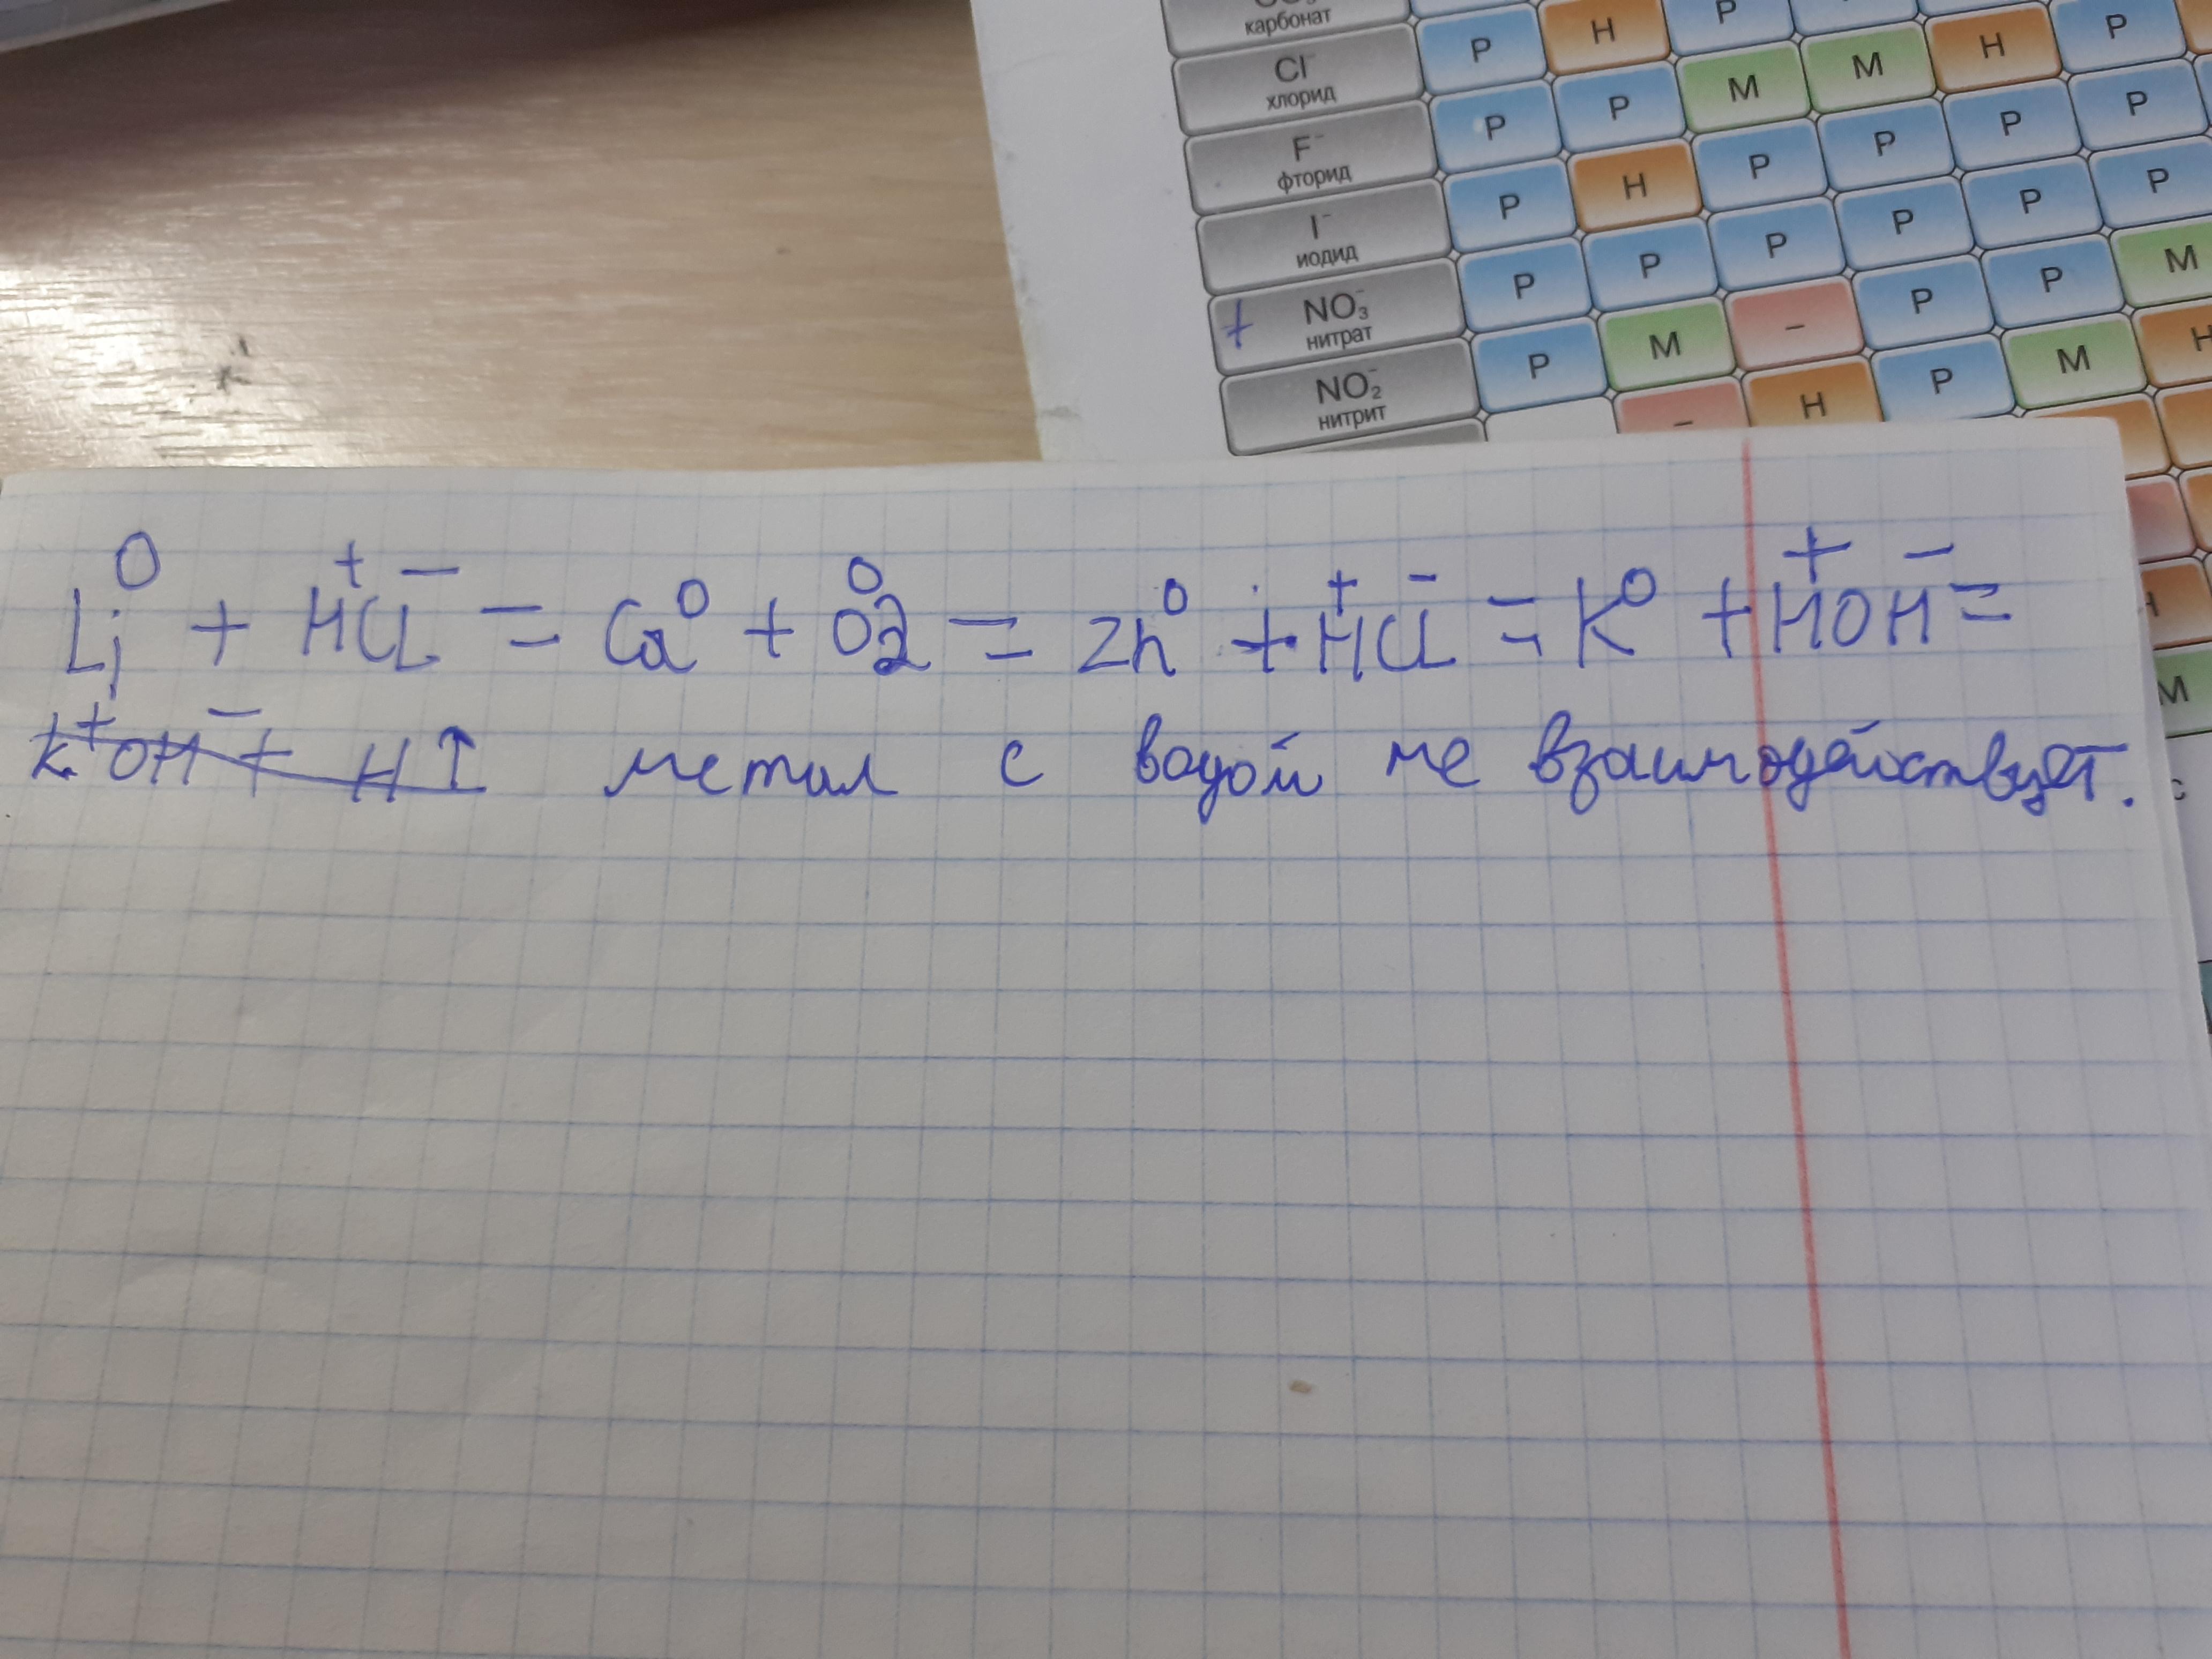 карбонат Р Н Р Р
Cl⁻ хлорид Р Р М М Н Р
F⁻ фторид Р Н Р Р Р Р
I⁻ иодид Р Р Р Р Р Р
+ NO₃⁻ нитрат Р М – Р Р М
NO₂⁻ нитрит – Н Р М Н
М
Li⁰ + H⁺Cl⁻ = Ca⁰ + O₂⁰ = Zn⁰ + H⁺Cl⁻ = K⁰ + H⁺OH⁻ =
K⁺OH⁻ + H↑ метал с водой не взаимодействует.